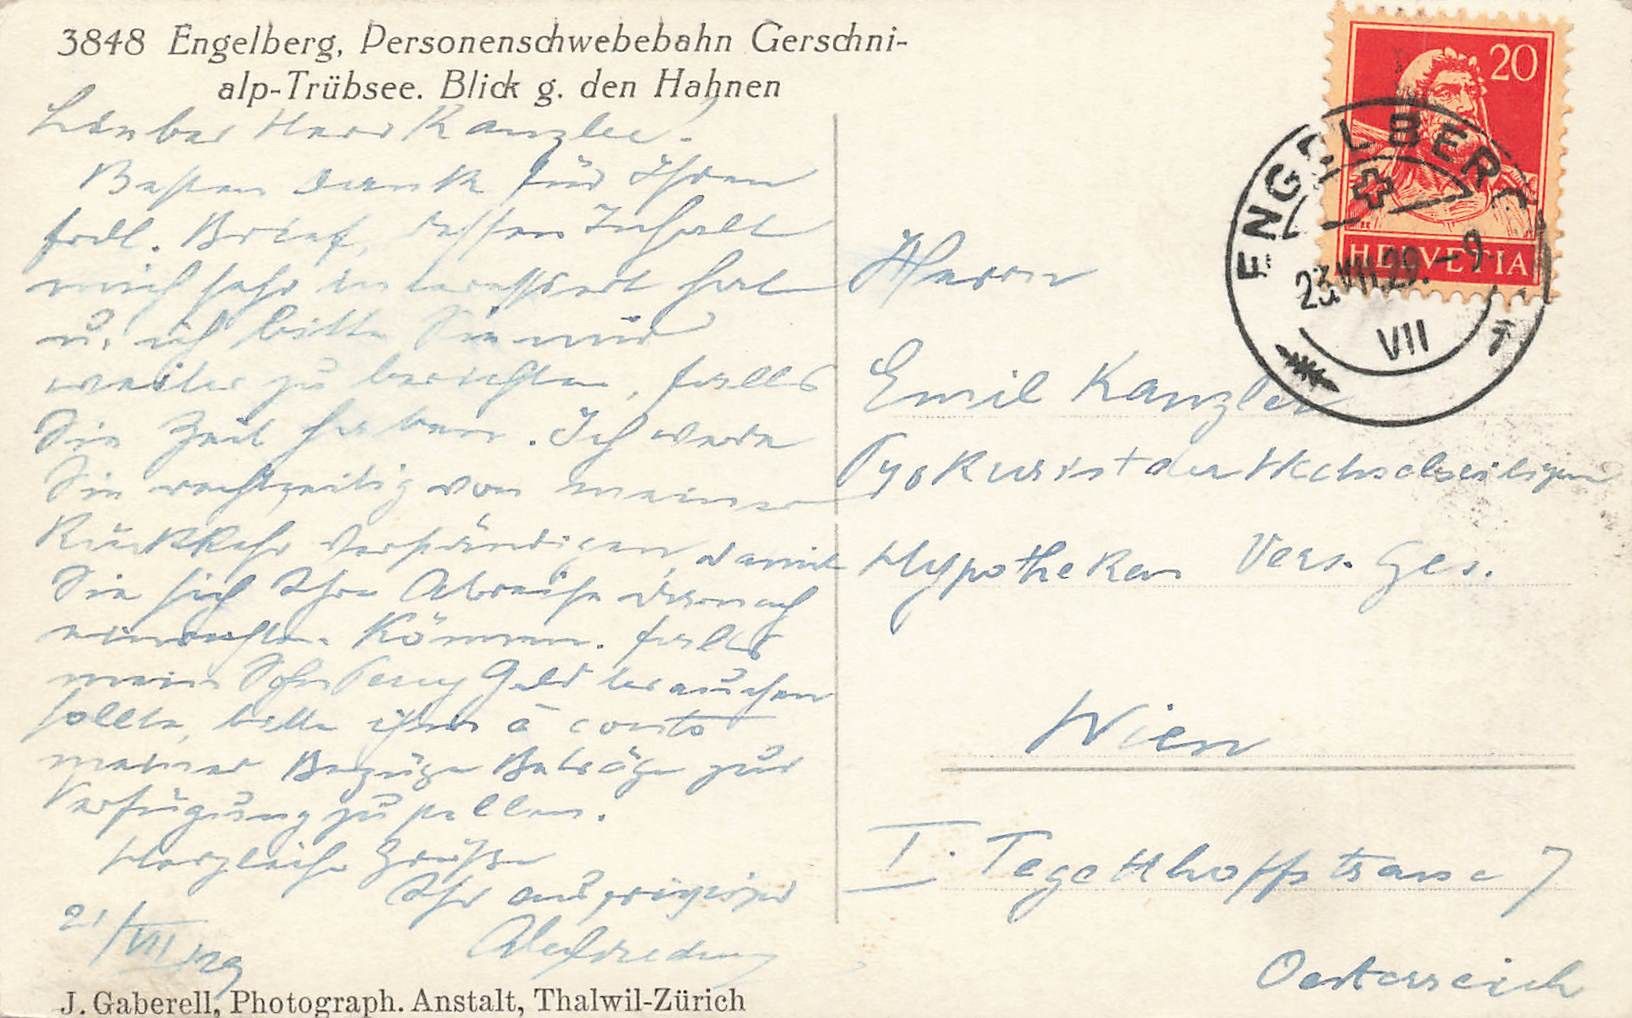 3848 Engelberg, Personenschwebebahn Gerschni-
alp-Trübsee. Blick g. den Hahnen
Lieber Herr Kanzler!
Besten Dank für Ihren
frdl. Brief, dessen Inhalt
mich sehr interessiert hat
u. ich bitte Sie mir
weiter zu berichten, falls
Sie Zeit haben. Ich werde
Sie rechtzeitig von meiner
Rückkehr verständigen, damit
Sie sich Ihre Abreise darnach
einrichten können. Falls
mein Sohn Geld brauchen
sollte, bitte ihm à conto
meiner Bezüge Beträge zur
Verfügung zu stellen.
Herzliche Grüße
Ihr aufrichtiger
21/VII 29
J. Gaberell, Photograph. Anstalt, Thalwil-Zürich
20
HELVETIA
ENGELBERG
23.VII.29.-9
VII
Herrn
Emil Kanzler
Prokurist der Wechselseitigen
Hypotheken Vers. Ges.
Wien
I. Tegetthoffstrasse 7
Oesterreich